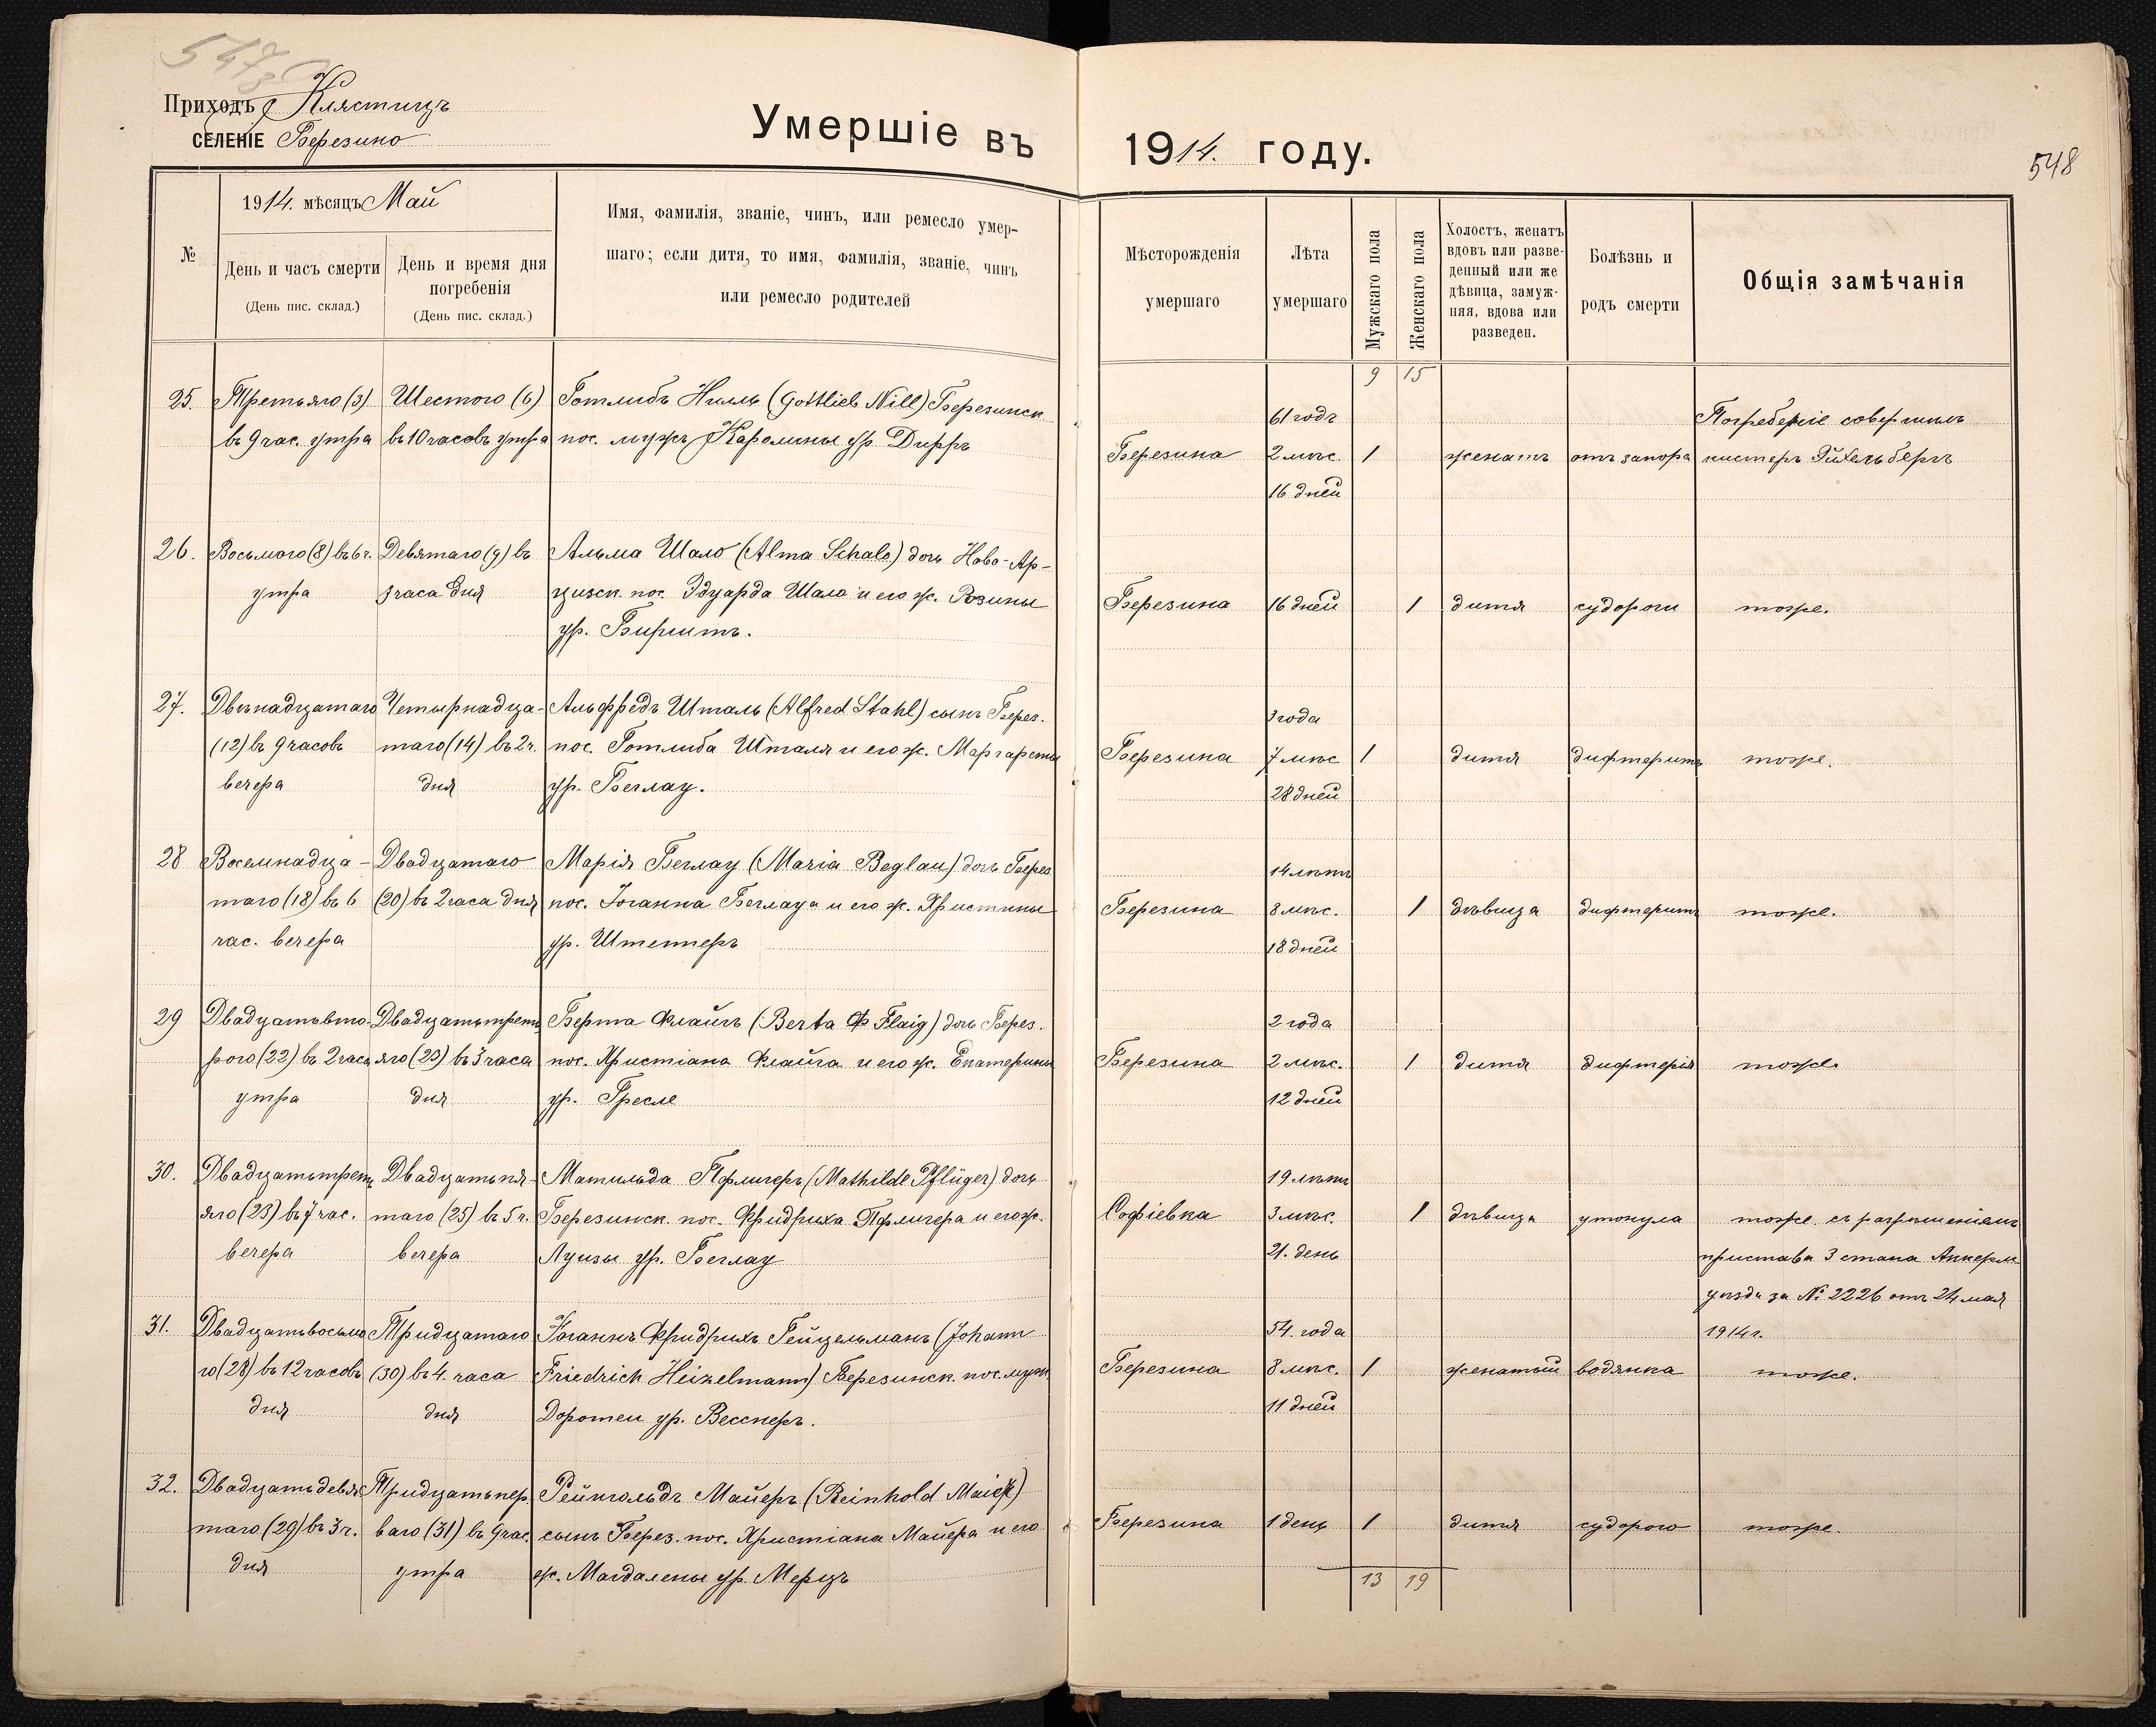 547
Приходъ Клястицъ
СЕЛЕНІЕ Березино
Умершіе въ 1914. году.
548
№
1914. мѣсяцъ Май
День и часъ смерти
(День пис. склад.)
День и время дня
погребенія
(День пис. склад.)
Имя, фамилія, званіе, чинъ, или ремесло умер-
шаго; если дитя, то имя, фамилія, званіе, чинъ
или ремесло родителей
Мѣсторожденія
умершаго
Лѣта
умершаго
Мужскаго пола
Женскаго пола
Холостъ, женатъ
вдовъ или разве-
денный или же
дѣвица, замуж-
няя, вдова или
разведен.
Болѣзнь и
родъ смерти
Общія замѣчанія
9 15
25.
Третьяго (3)
въ 9 час. утра
Шестого (6)
въ 10 часовъ утра
Готлибъ Нилль (Gottlieb Nill) Березинск.
пос. мужъ Каролины ур. Дирръ
Березина
61 годъ
2 мѣс.
16 дней
1
женатъ
отъ запора
Погребеніе совершилъ
кистеръ Эйхельбергъ
26.
Восьмого (8) въ 6 ч.
утра
Девятаго (9) въ
3 часа дня
Альма Шало (Alma Schalo) дочь Ново-Ар-
цизск. пос. Эдуарда Шало и его ж. Розины
ур. Биршитъ.
Березина
16 дней
1
дитя
судороги
тоже.
27.
Двѣнадцатаго
(12) въ 9 часовъ
вечера
Четырнадца-
таго (14) въ 2 ч.
дня
Альфредъ Шталь (Alfred Stahl) сынъ Берез.
пос. Готлиба Шталя и его ж. Маргареты
ур. Беглау.
Березина
3 года
7 мѣс
28 дней
1
дитя
дифтеритъ
тоже.
28
Восемнадца-
таго (18) въ 6
час. вечера
Двадцатаго
(20) въ 2 часа дня
Марія Беглау (Maria Beglau) дочь Берез
пос. Іоганна Беглау и его ж. Христины
ур. Штепперъ
Березина
14 лѣтъ
8 мѣс.
18 дней
1
дѣвица
дифтеритъ
тоже.
29
Двадцатьвто-
рого (22) въ 2 часа
утра
Двадцатьтреть
яго (23) въ 3 часа
дня
Берта Флайгъ (Berta Ф Flaig) дочь Берез.
пос. Христіана Флайга и его ж. Екатерины
ур. Гресле
Березина
2 года
2 мѣс.
12 дней
1
дитя
дифтерія
тоже
30.
Двадцатьтреть
яго (23) въ 7 час.
вечера
Двадцатьпя-
таго (25) въ 5 ч.
вечера
Матильда Пфлигеръ (Mathilde Pflüger) дочь
Березинск. пос. Фридриха Пфлигера и его ж.
Луизы ур. Беглау
Софіевка
19 лѣтъ
3 мѣс.
21. день
1
дѣвица
утонула
тоже. съ разрѣшеніемъ
пристава 3 стана Аккерм.
уѣзда за № 2226 отъ 24 мая
1914 г.
31.
Двадцатьвосьмо
го (28) въ 12 часовъ
дня
Тридцатаго
(30) въ 4. часа
дня
Іоганнъ Фридрихъ Гейцельманъ (Johann
Friedrich Heizelmann) Березинск. пос. мужъ
Доротеи ур. Весснеръ.
Березина
54. года
8 мѣс.
11 дней
1
женатый
водянка
тоже.
32.
Двадцатьдевя
таго (29) въ 3 ч.
дня
Тридцатьпер
ваго (31) въ 9 час.
утра
Рейнгольдъ Майеръ (Reinhold Maier)
сынъ Берез. пос. Христіана Майера и его
ж. Магдалены ур. Мерцъ
Березина
1 день
1
дитя
судорого
тоже.
13 19